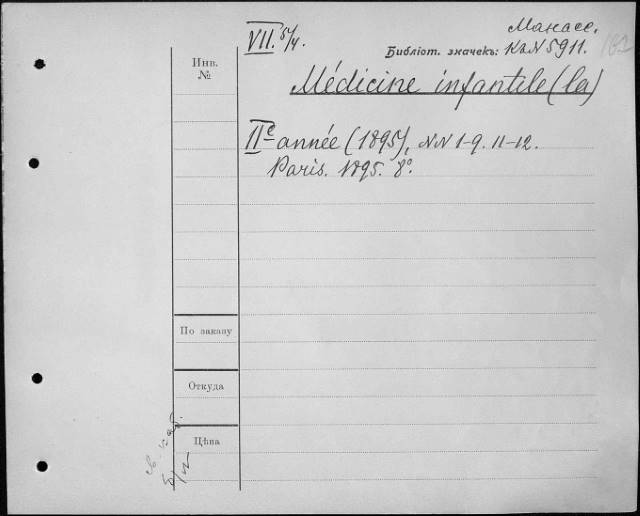 VII. 5/4.
Манасс.
Библіот. значекъ: К2N 5911.
Médicine infantile (la)
IIe année (1895), NN 1-9. 11-12.
Paris. 1895. 8°.
Инв.
№
По заказу
Откуда
Цѣна